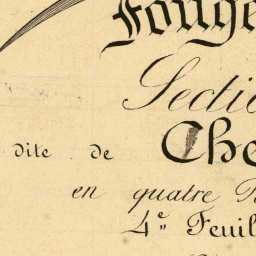 Fouge
Sectio
dite de Che
en quatre
4e Feuil